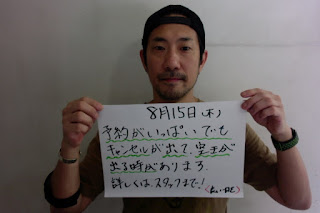 8月15日(木)
予約がいっぱいでも
キャンセルが出て、空きが
出る時があります。
詳しくは、スタッフまで!